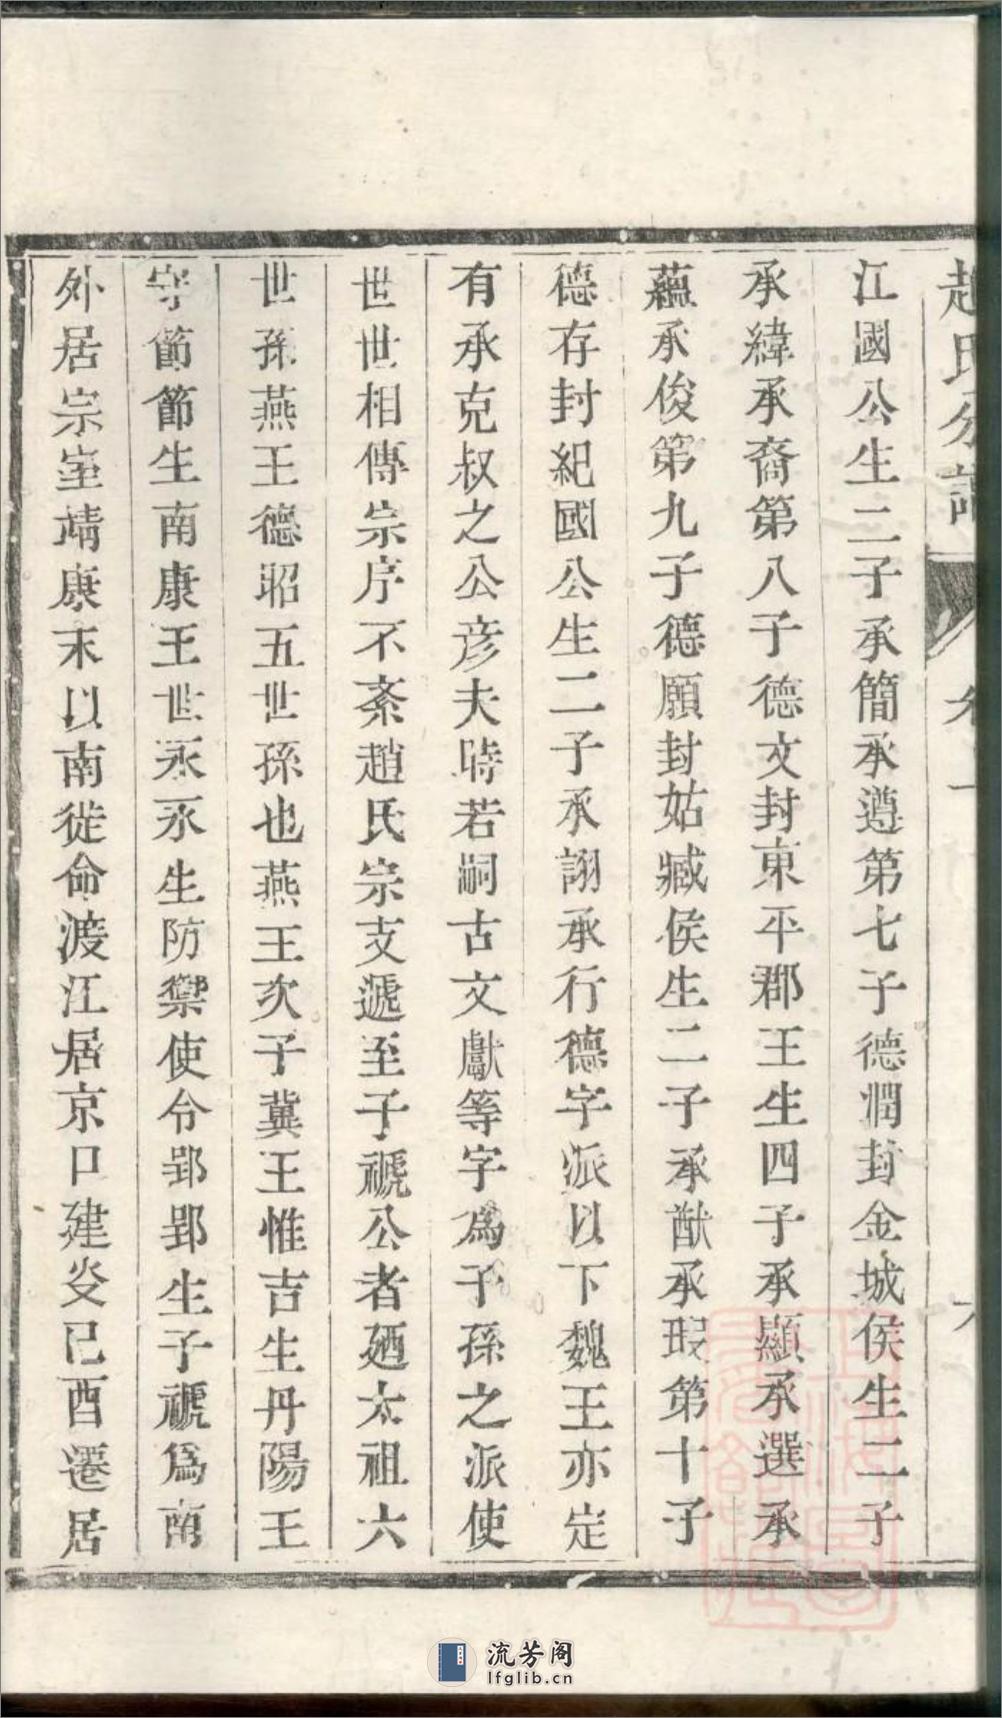 趙氏分譜
江國公生二子承簡承遵第七子德潤封金城侯生二子
承緯承裔第八子德文封東平郡王生四子承顯承選承
蘊承俊第九子德願封姑臧侯生二子承猷承瑕第十子
德存封紀國公生二子承詡承行德字派以下魏王亦定
有承克叔之公彥夫時若嗣古文獻等字為子孫之派使
世世相傳宗序不紊趙氏宗支遞至子禠公者廼太祖六
世孫燕王德昭五世孫也燕王次子冀王惟吉生丹陽王
守節節生南康王世永永生防禦使令郢郢生子禠為南
外居宗室靖康末以南徙命渡江居京口建炎己酉遷居
流芳阁
lfglib.cn